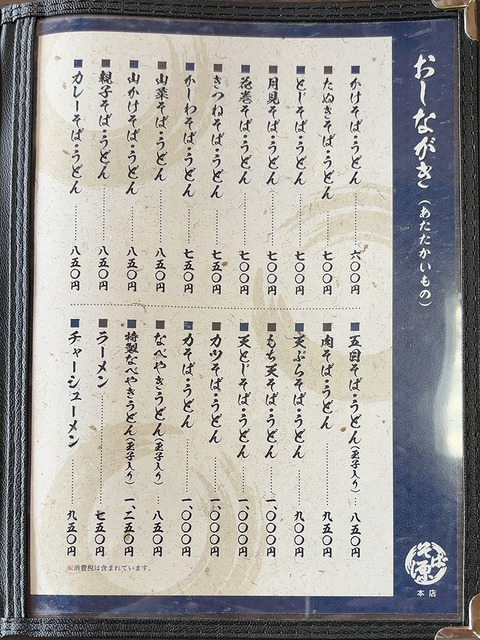 おしながき（あたたかいもの）
かけそば・うどん 六〇〇円
たぬきそば・うどん 七〇〇円
とじそば・うどん 七〇〇円
月見そば・うどん 七〇〇円
花巻そば・うどん 七〇〇円
きつねそば・うどん 七五〇円
かしわそば・うどん 七五〇円
山菜そば・うどん 八五〇円
山かけそば・うどん 八五〇円
親子そば・うどん 八五〇円
カレーそば・うどん 八五〇円
五目そば・うどん（玉子入り） 八五〇円
肉そば・うどん 九五〇円
天ぷらそば・うどん 九〇〇円
もち天そば・うどん 一、〇〇〇円
天とじそば・うどん 一、〇〇〇円
カツそば・うどん 一、〇〇〇円
力そば・うどん 一、〇〇〇円
なべやきうどん（玉子入り） 八五〇円
特製なべやきうどん（玉子入り） 一、二五〇円
ラーメン 七五〇円
チャーシューメン 九五〇円
※消費税は含まれています。
本店